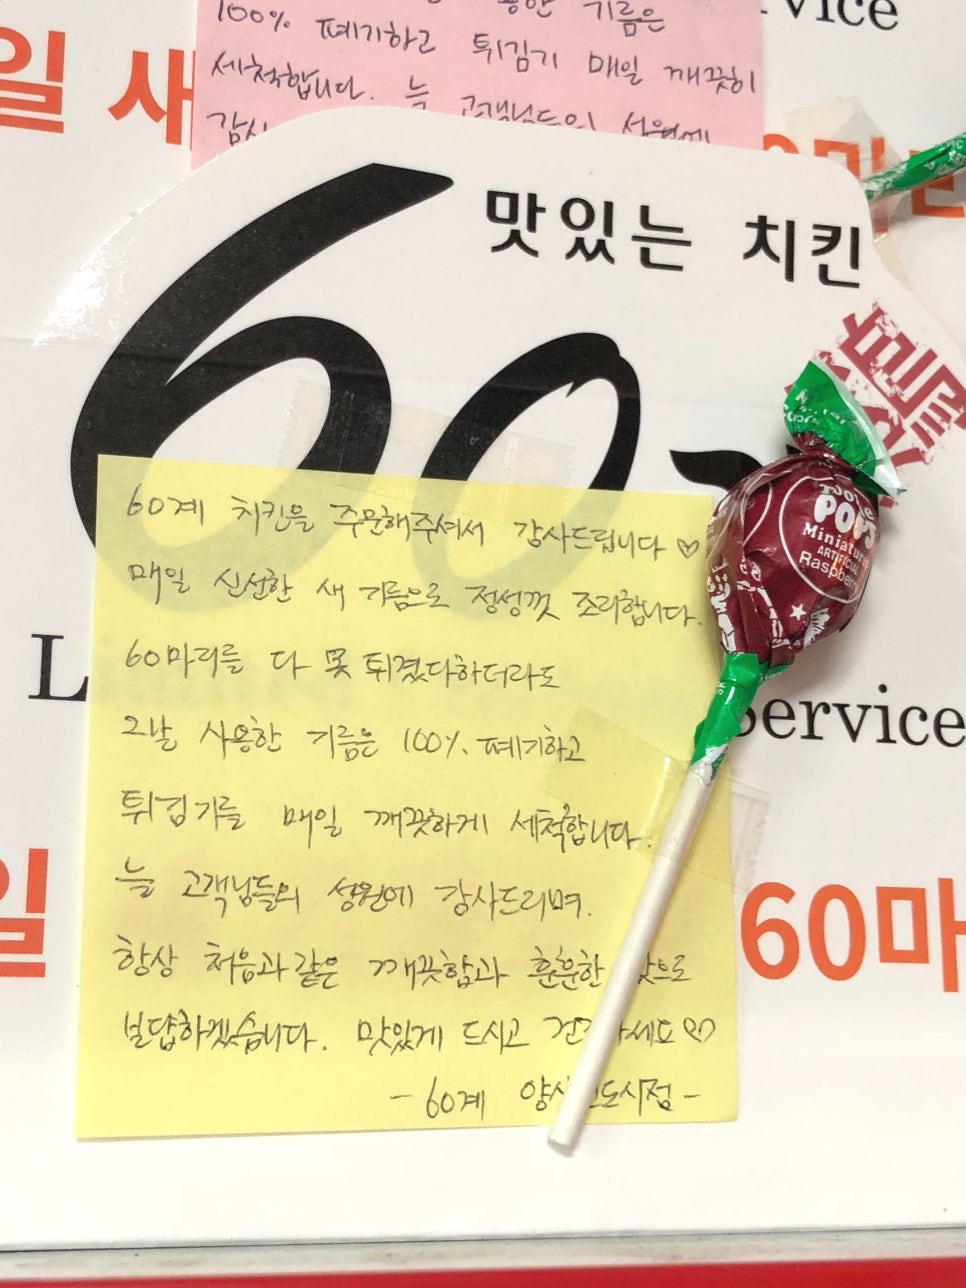 기름은
100% 폐기하고 튀김기 매일 깨끗이
세척합니다. 늘 고객님들의 성원에
vice
일 새
맛있는 치킨
60
TOOTSIE
POPS
Miniature
ARTIFICIAL
Raspberry
60계 치킨을 주문해주셔서 감사드립니다 ♡
매일 신선한 새 기름으로 정성껏 조리합니다.
60마리를 다 못 튀겼다하더라도
그날 사용한 기름은 100% 폐기하고
튀김기를 매일 깨끗하게 세척합니다.
늘 고객님들의 성원에 감사드리며.
항상 처음과 같은 깨끗함과 훈훈한 맛으로
보답하겠습니다. 맛있게 드시고 건강하세요 ♡
- 60계 양산신도시점 -
L
Service
일
60마